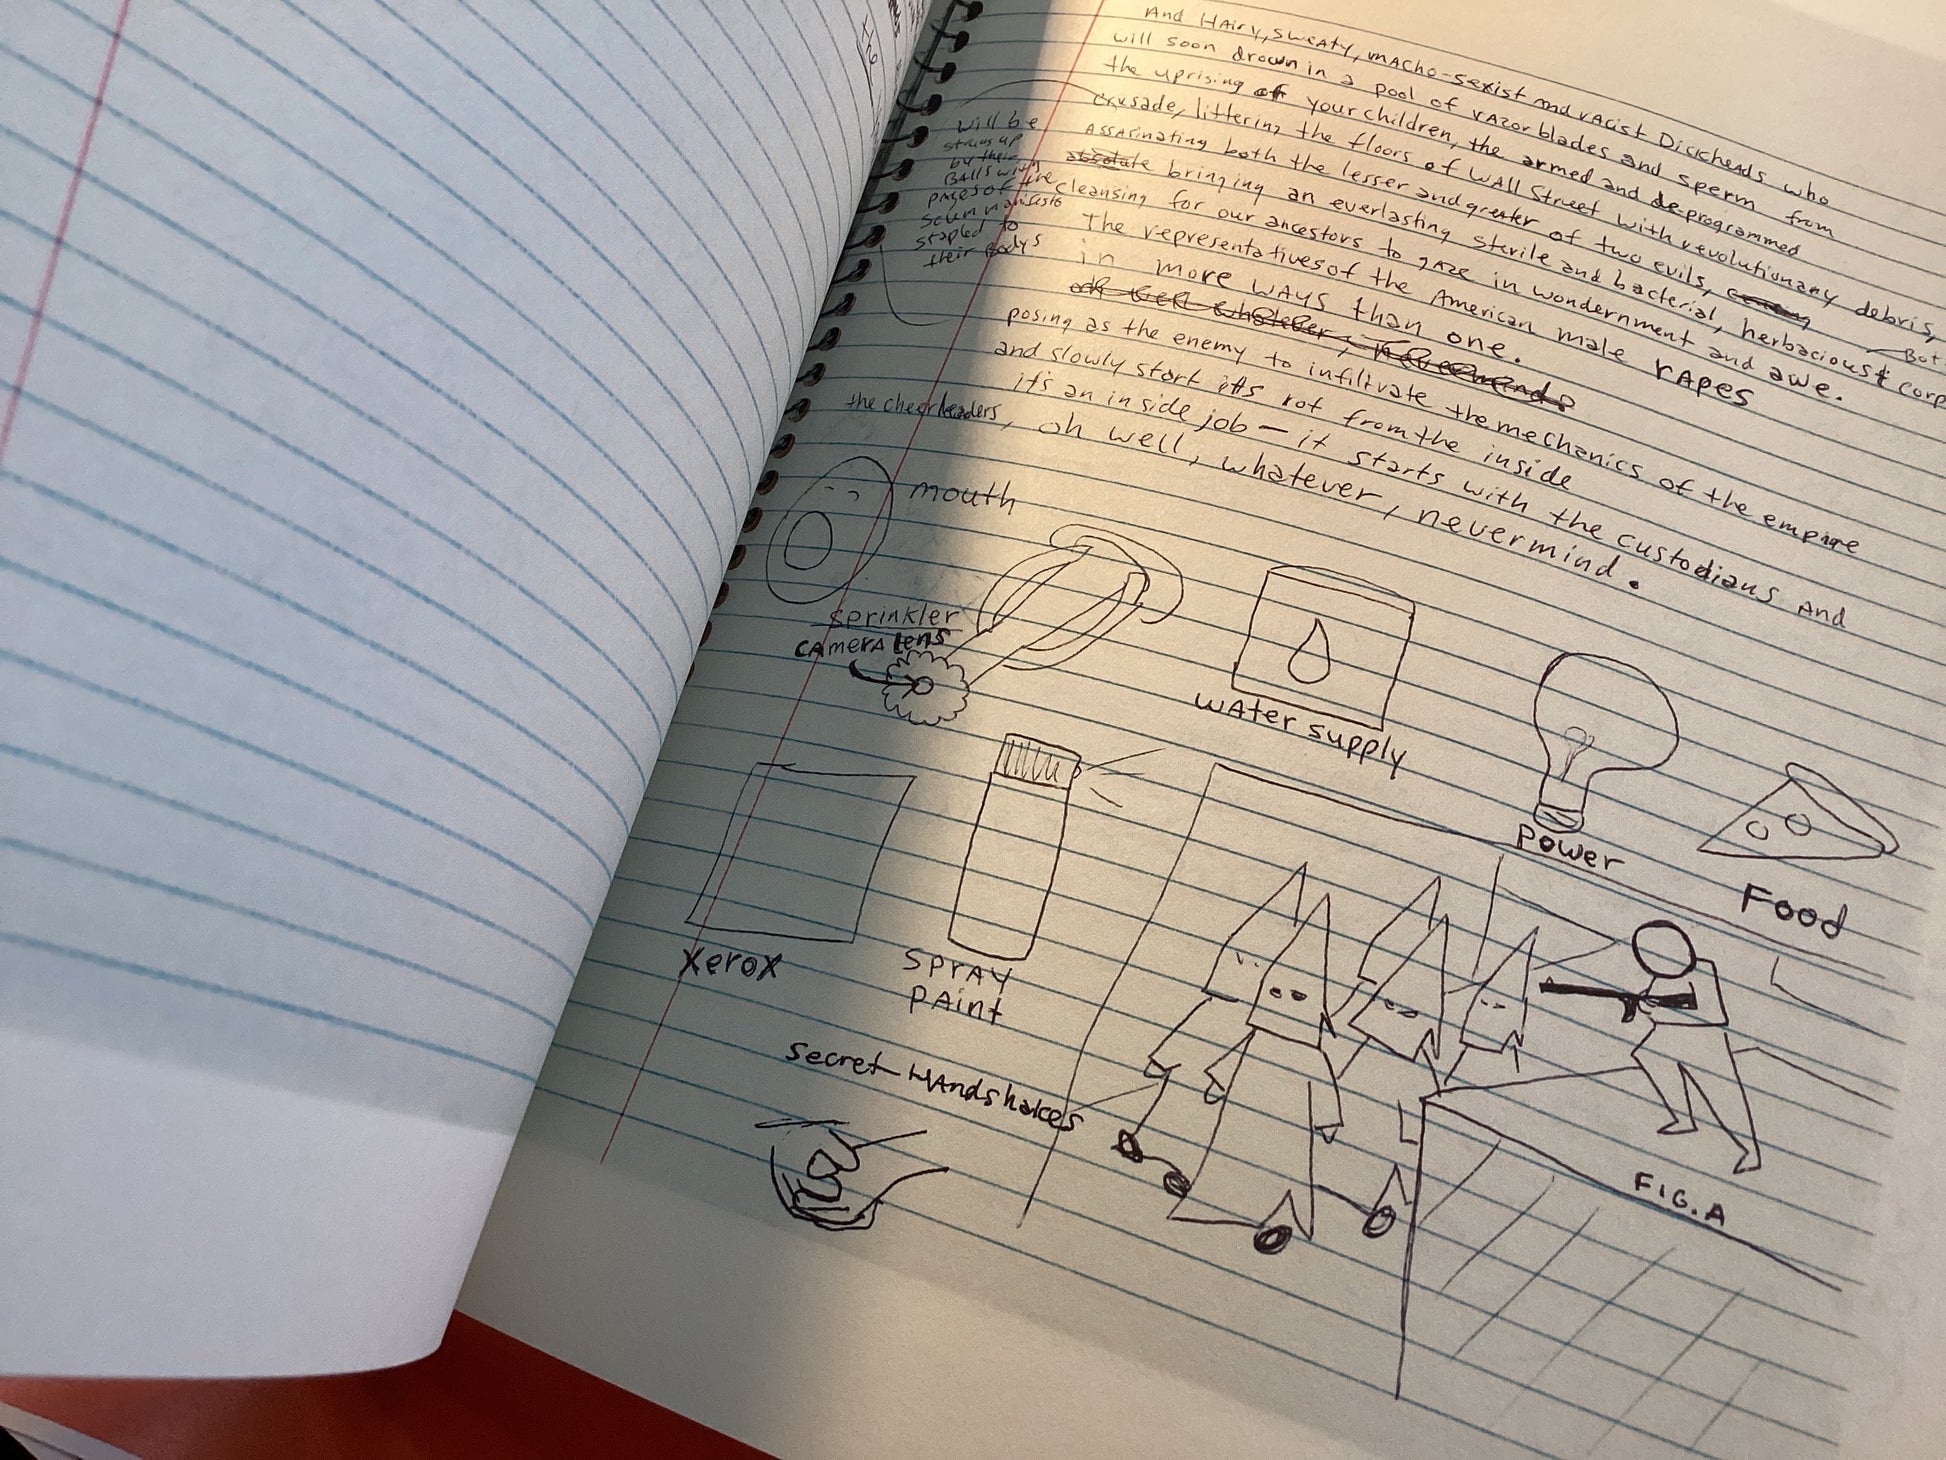 the
And HAiry, sweaty, mAcho-sexist and rAcist Dickheads who
will soon drown in a pool of rAzor blades and sperm from
the uprising of your children, the armed and deprogrammed
crusade, littering the floors of WAll Street with revolutionary debris,
Assasinating both the lesser and greater of two evils,
absolute bringing an everlasting sterile and bacterial, herbacioust corp
cleansing for our ancestors to gaze in wondernment and awe.
Bot
will be
strung up
by their
BAlls with
pages of the
scum manifesto
stapled to
their Bodys
The representatives of the American male rApes
in more wAys than one.
oh well whatever, nevermind.
posing as the enemy to infiltrate the mechanics of the empire
and slowly start its rot from the inside
it's an inside job — it starts with the custodians And
the cheerleaders, oh well, whatever, nevermind.
mouth
sprinkler
camera lens
wAter supply
power
Food
Xerox
sprAy
pAint
secret HAndshakes
FIG. A